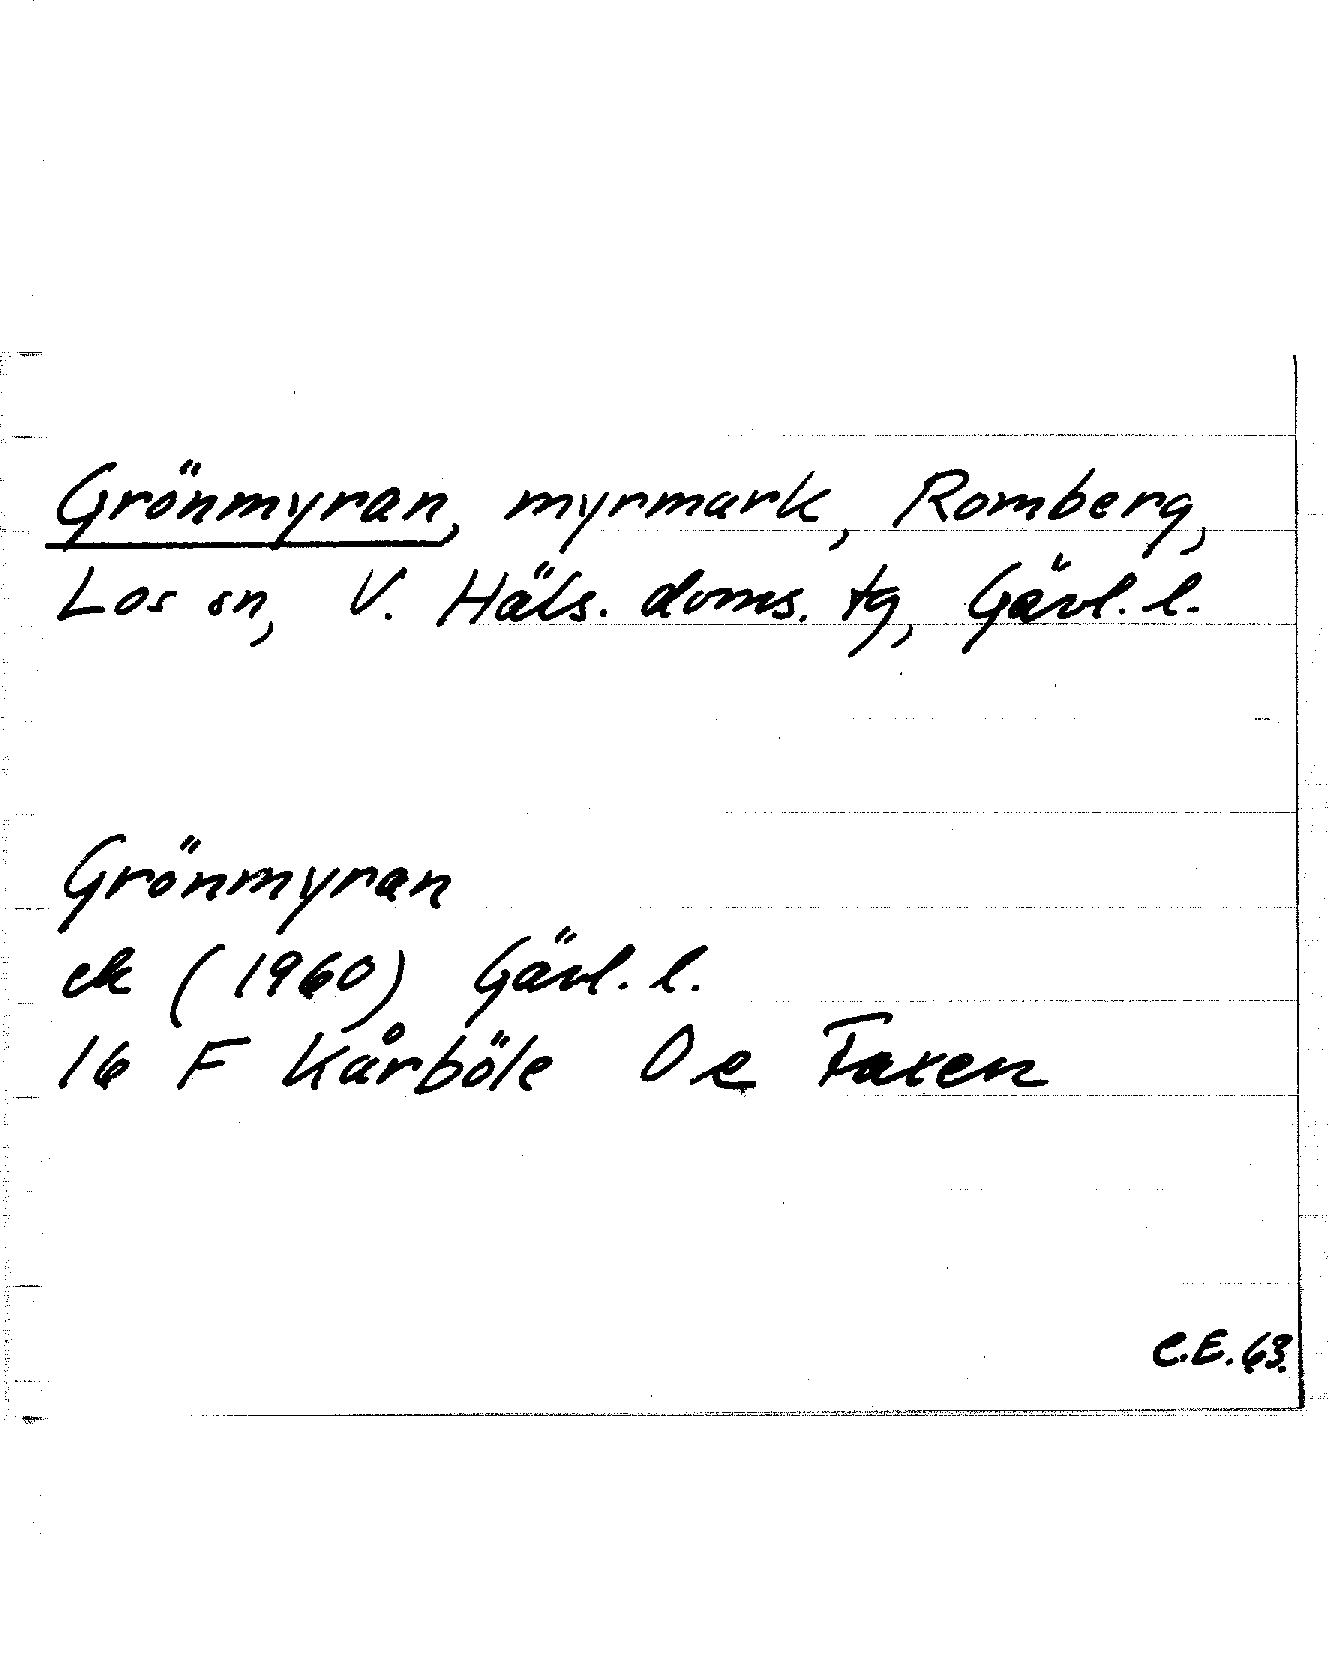 Grönmyran, myrmark, Romberg,
Los sn, V. Häls. doms. tg, Gävl. l.
Grönmyran
ek (1960) Gävl. l.
16 F Kårböle O e Faxen
C.E. 63.